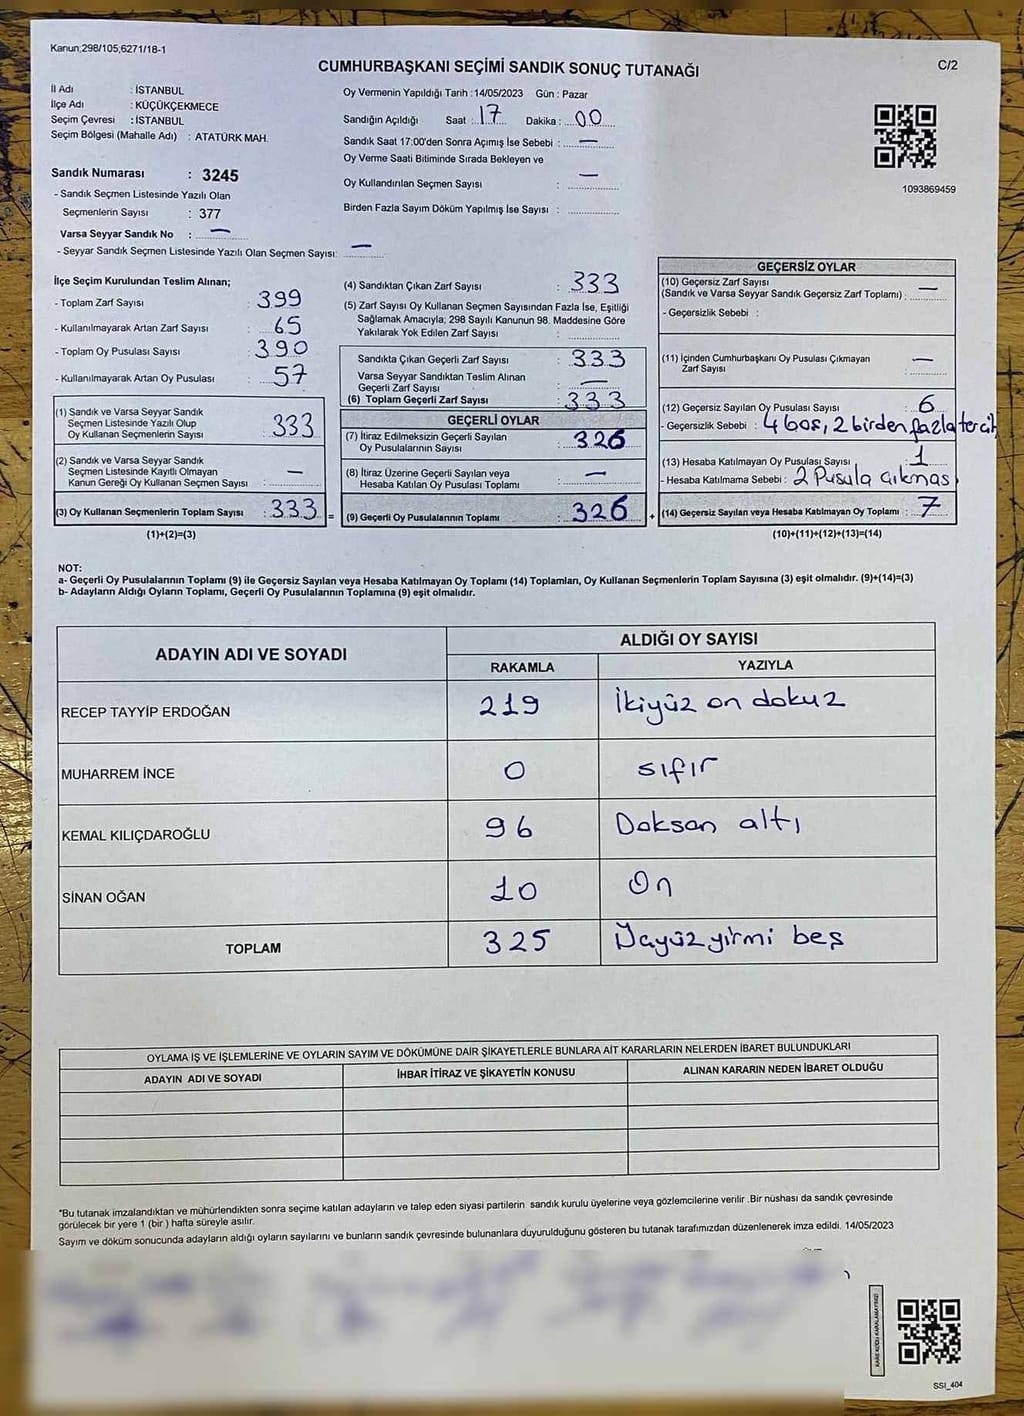 Kanun,298/105,6271/18-1
C/2
CUMHURBAŞKANI SEÇİMİ SANDIK SONUÇ TUTANAĞI
İl Adı : İSTANBUL
İlçe Adı : KÜÇÜKÇEKMECE
Seçim Çevresi : İSTANBUL
Seçim Bölgesi (Mahalle Adı) : ATATÜRK MAH.
Sandık Numarası : 3245
- Sandık Seçmen Listesinde Yazılı Olan
Seçmenlerin Sayısı : 377
Varsa Seyyar Sandık No : —
- Seyyar Sandık Seçmen Listesinde Yazılı Olan Seçmen Sayısı: —
Oy Vermenin Yapıldığı Tarih : 14/05/2023 Gün : Pazar
Sandığın Açıldığı Saat : 17 Dakika : 00
Sandık Saat 17:00'den Sonra Açımış İse Sebebi : —
Oy Verme Saati Bitiminde Sırada Bekleyen ve
Oy Kullandırılan Seçmen Sayısı : —
Birden Fazla Sayım Döküm Yapılmış İse Sayısı :
1093869459
İlçe Seçim Kurulundan Teslim Alınan;
- Toplam Zarf Sayısı : 399
- Kullanılmayarak Artan Zarf Sayısı : 65
- Toplam Oy Pusulası Sayısı : 390
- Kullanılmayarak Artan Oy Pusulası : 57
(1) Sandık ve Varsa Seyyar Sandık
Seçmen Listesinde Yazılı Olup
Oy Kullanan Seçmenlerin Sayısı : 333
(2) Sandık ve Varsa Seyyar Sandık
Seçmen Listesinde Kayıtlı Olmayan
Kanun Gereği Oy Kullanan Seçmen Sayısı : —
(3) Oy Kullanan Seçmenlerin Toplam Sayısı : 333 =
(1)+(2)=(3)
(4) Sandıktan Çıkan Zarf Sayısı : 333
(5) Zarf Sayısı Oy Kullanan Seçmen Sayısından Fazla İse, Eşitliği
Sağlamak Amacıyla; 298 Sayılı Kanunun 98. Maddesine Göre
Yakılarak Yok Edilen Zarf Sayısı :
Sandıkta Çıkan Geçerli Zarf Sayısı : 333
Varsa Seyyar Sandıktan Teslim Alınan
Geçerli Zarf Sayısı : —
(6) Toplam Geçerli Zarf Sayısı : 333
GEÇERLİ OYLAR
(7) İtiraz Edilmeksizin Geçerli Sayılan
Oy Pusulalarının Sayısı : 326
(8) İtiraz Üzerine Geçerli Sayılan veya
Hesaba Katılan Oy Pusulası Toplamı : —
(9) Geçerli Oy Pusulalarının Toplamı : 326 +
GEÇERSİZ OYLAR
(10) Geçersiz Zarf Sayısı
(Sandık ve Varsa Seyyar Sandık Geçersiz Zarf Toplamı) : —
- Geçersizlik Sebebi :
(11) İçinden Cumhurbaşkanı Oy Pusulası Çıkmayan
Zarf Sayısı : —
(12) Geçersiz Sayılan Oy Pusulası Sayısı : 6
- Geçersizlik Sebebi : 4 boş, 2 birden fazla tercih
(13) Hesaba Katılmayan Oy Pusulası Sayısı : 1
- Hesaba Katılmama Sebebi : 2 Pusula çıkması
(14) Geçersiz Sayılan veya Hesaba Katılmayan Oy Toplamı : 7
(10)+(11)+(12)+(13)=(14)
NOT:
a- Geçerli Oy Pusulalarının Toplamı (9) ile Geçersiz Sayılan veya Hesaba Katılmayan Oy Toplamı (14) Toplamları, Oy Kullanan Seçmenlerin Toplam Sayısına (3) eşit olmalıdır. (9)+(14)=(3)
b- Adayların Aldığı Oyların Toplamı, Geçerli Oy Pusulalarının Toplamına (9) eşit olmalıdır.
ADAYIN ADI VE SOYADI ALDIĞI OY SAYISI
RAKAMLA YAZIYLA
RECEP TAYYİP ERDOĞAN 219 İkiyüz on dokuz
MUHARREM İNCE 0 sıfır
KEMAL KILIÇDAROĞLU 96 Doksan altı
SİNAN OĞAN 10 On
TOPLAM 325 Üçyüz yirmi beş
OYLAMA İŞ VE İŞLEMLERİNE VE OYLARIN SAYIM VE DÖKÜMÜNE DAİR ŞİKAYETLERLE BUNLARA AİT KARARLARIN NELERDEN İBARET BULUNDUKLARI
ADAYIN ADI VE SOYADI İHBAR İTİRAZ VE ŞİKAYETİN KONUSU ALINAN KARARIN NEDEN İBARET OLDUĞU
*Bu tutanak imzalandıktan ve mühürlendikten sonra seçime katılan adayların ve talep eden siyasi partilerin sandık kurulu üyelerine veya gözlemcilerine verilir .Bir nüshası da sandık çevresinde
görülecek bir yere 1 (bir ) hafta süreyle asılır.
Sayım ve döküm sonucunda adayların aldığı oyların sayılarını ve bunların sandık çevresinde bulunanlara duyurulduğunu gösteren bu tutanak tarafımızdan düzenlenerek imza edildi. 14/05/2023
KARE KODU KARALAMAYINIZ!
SSI_404